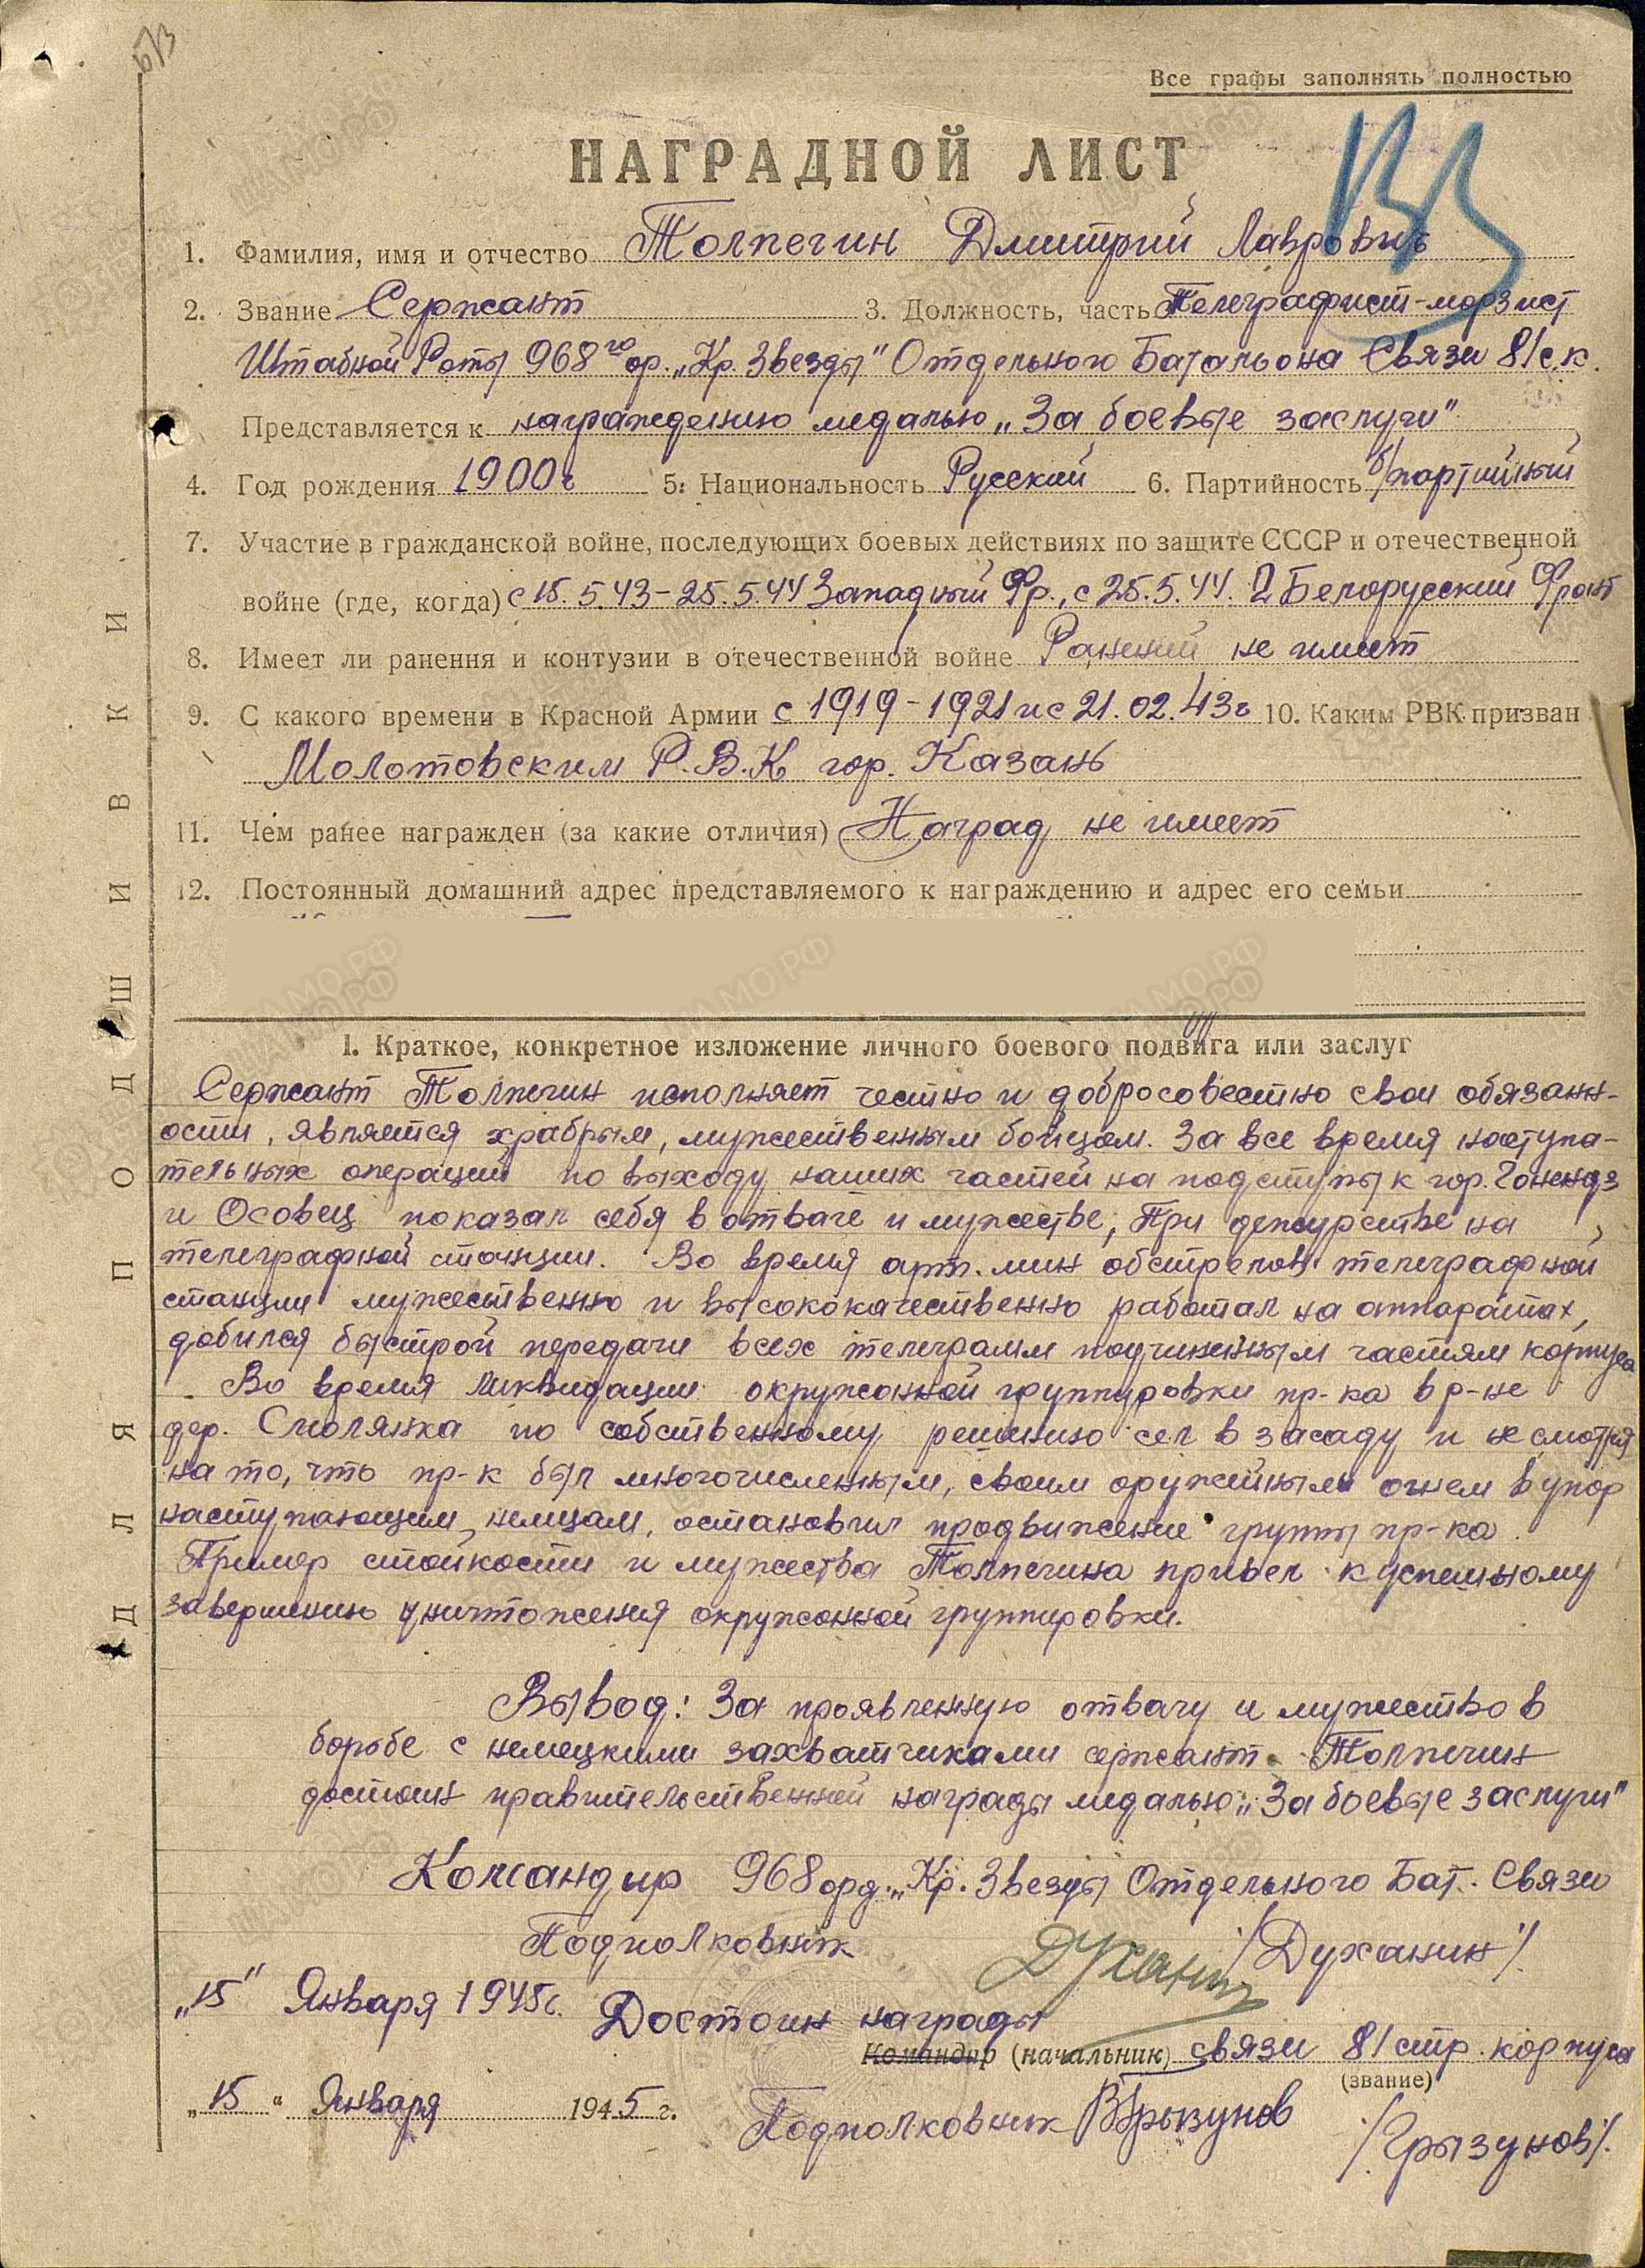 Все графы заполнять полностью
НАГРАДНОЙ ЛИСТ
1. Фамилия, имя и отчество Толпегин Дмитрий Лаврович
2. Звание Сержант 3. Должность, часть Телеграфист-морзист
Штабной Роты 968го ор. „Кр. Звезды" Отдельного Батальона Связи 81 с.к.
Представляется к награждению медалью „За боевые заслуги"
4. Год рождения 1900г 5. Национальность Русский 6. Партийность б/партийный
7. Участие в гражданской войне, последующих боевых действиях по защите СССР и отечественной
войне (где, когда) с 15.5.43-25.5.44 Западный Фр., с 25.5.44. 2 Белорусский Фронт
8. Имеет ли ранения и контузии в отечественной войне Ранений не имеет
9. С какого времени в Красной Армии с 1919-1921 и с 21.02.43г 10. Каким РВК призван
Молотовским Р.В.К гор. Казань
11. Чем ранее награжден (за какие отличия) Наград не имеет
12. Постоянный домашний адрес представляемого к награждению и адрес его семьи
I. Краткое, конкретное изложение личного боевого подвига или заслуг
Сержант Толпегин исполняет честно и добросовестно свои обязанн-
ости, является храбрым, мужественным бойцом. За все время наступа-
тельных операций по выходу наших частей на подступы к гор. Гонендз
и Осовец показал себя в отваге и мужестве, При дежурстве на
телеграфной станции. Во время арт. мин обстрелов телеграфной
станции мужественно и высококачественно работал на аппаратах,
добился быстрой передачи всех телеграмм подчиненным частям корпуса
Во время ликвидации окружонной группировки пр-ка в р-не
дер. Смолянка по собственному решению сел в засаду и не смотря
на то, что пр-к был многочисленным, своим оружейным огнем в упор
наступающим немцам, остановил продвижение группы пр-ка.
Пример стойкости и мужества Толпегина привел к успешному
завершению уничтожения окружонной группировки.
Вывод: За проявленную отвагу и мужество в
борьбе с немецкими захватчиками сержант Толпегин
достоин правительственной награды медалью „За боевые заслуги"
Командир 968 орд. „Кр. Звезды Отдельного Бат. Связи
Подполковник Духанин /Духанин/.
„15" Января 1945г. Достоин награды
Командир (начальник) связи 81 стр. корпуса
(звание)
„15" Января 1945 г. Подполковник ВГрызунов /Грызунов/.
ДЛЯ ПОДШИВКИ
ЦАМО.РФ